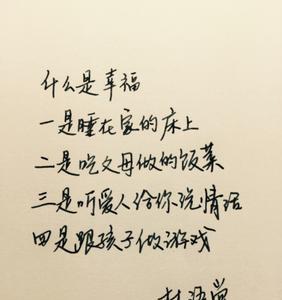 什么是幸福
一是睡在家的床上
二是吃父母做的饭菜
三是听爱人给你说情话
四是跟孩子做游戏
林语堂